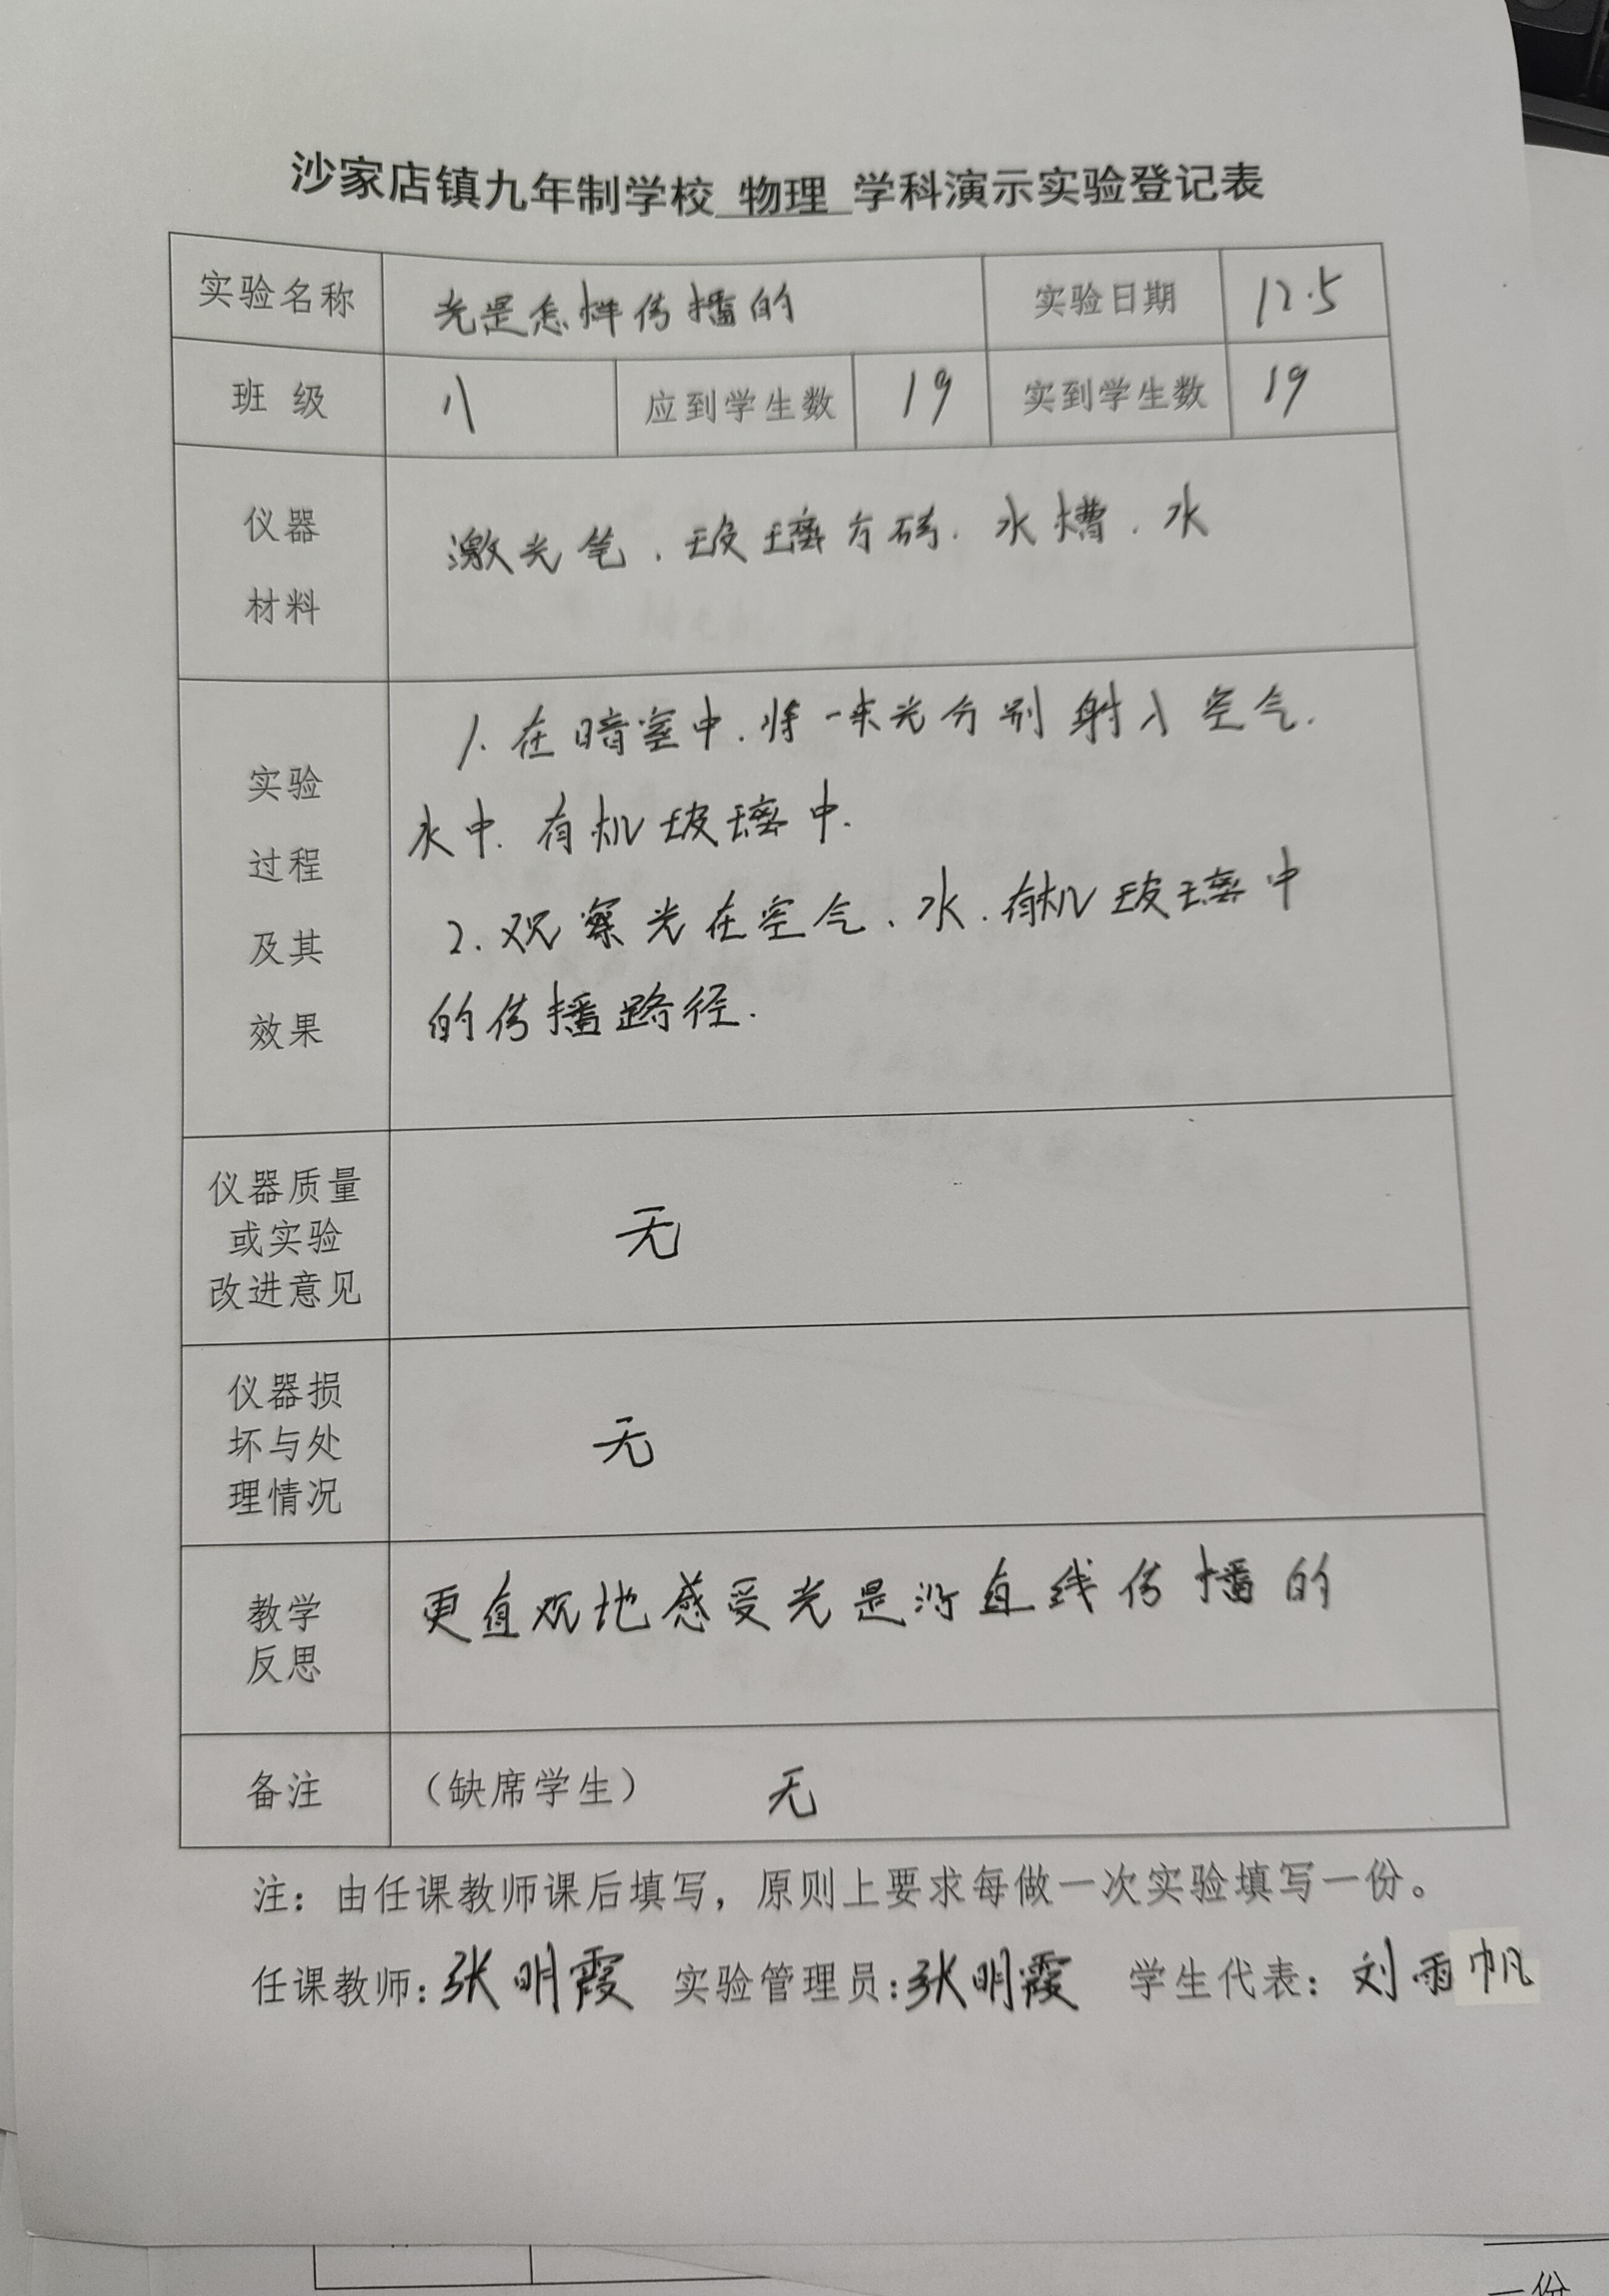 沙家店镇九年制学校 物理 学科演示实验登记表
实验名称 光是怎样传播的 实验日期 12.5
班 级 八 应到学生数 19 实到学生数 19
仪器
材料
激光笔、玻璃方砖、水槽、水
实验
过程
及其
效果
1. 在暗室中、将一束光分别射入空气、
水中、有机玻璃中.
2. 观察光在空气、水、有机玻璃中
的传播路径.
仪器质量
或实验
改进意见
无
仪器损
坏与处
理情况
无
教学
反思
更直观地感受光是沿直线传播的
备注 （缺席学生） 无
注：由任课教师课后填写，原则上要求每做一次实验填写一份。
任课教师：张明霞 实验管理员：张明霞 学生代表：刘雨帆
一份